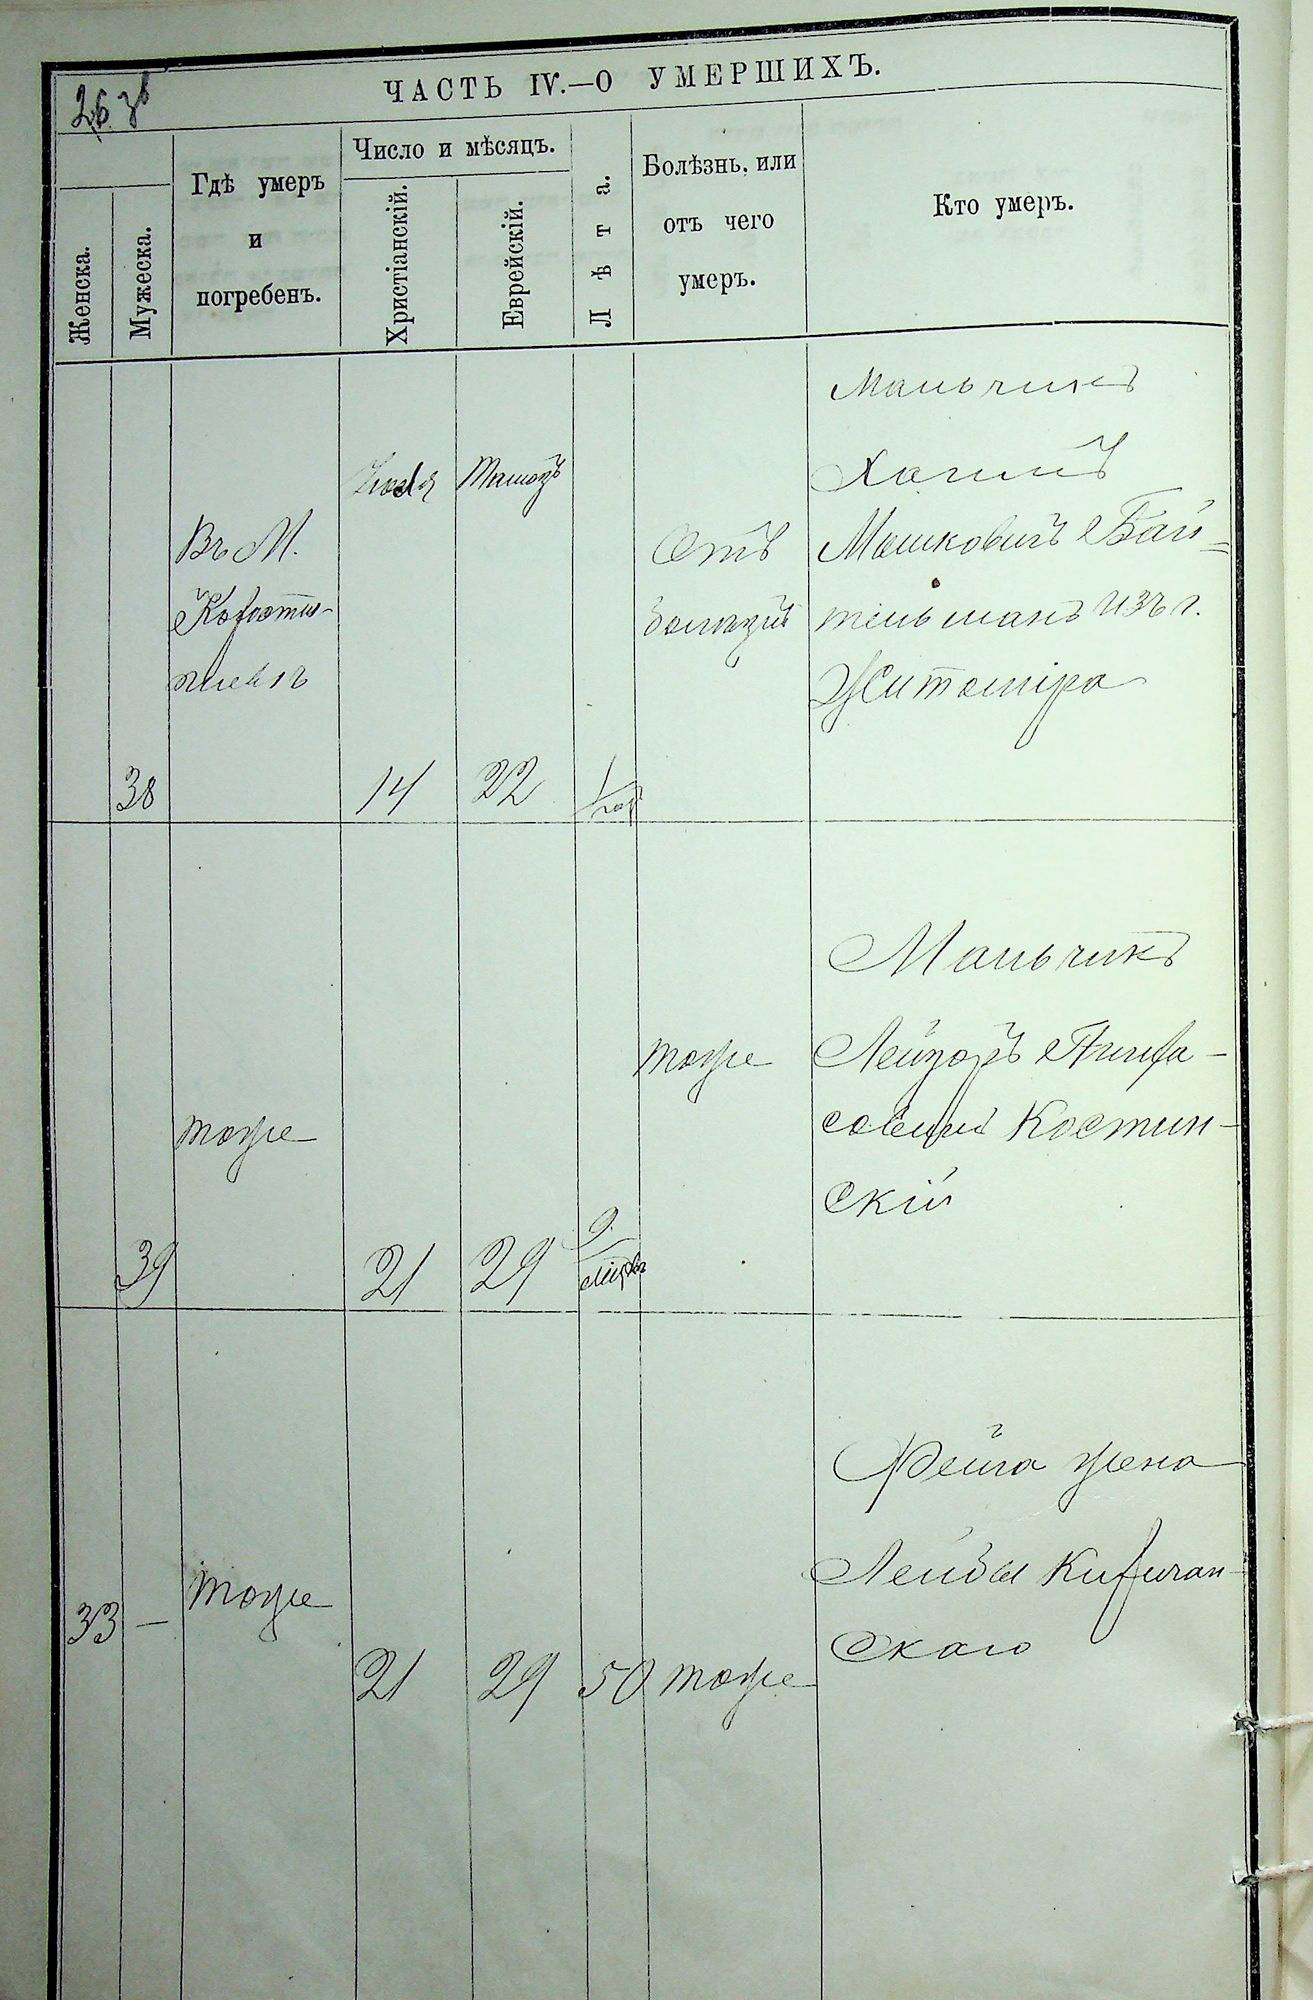 ЧАСТЬ IV.—О УМЕРШИХЪ.
Женска.
Мужеска.
Гдѣ умеръ
и
погребенъ.
Число и мѣсяцъ.
Христіанскій.
Еврейскій.
Лѣта.
Болѣзнь, или
отъ чего
умеръ.
Кто умеръ.
Мальчикъ
Хаимъ
Мошковичъ Бай=
тельманъ изъ г.
Житоміра
Отъ
Іюля
Тамозъ
Въ М.
Коросты-
шевѣ
38
14
22
1 год
Мальчикъ
Лейзоръ Пинха-
совичъ Костин-
скій
тоже
тоже
39
21
29
9
Фейга жена
Лейбы Киричан-
скаго
33
—
тоже
21
29
50
тоже